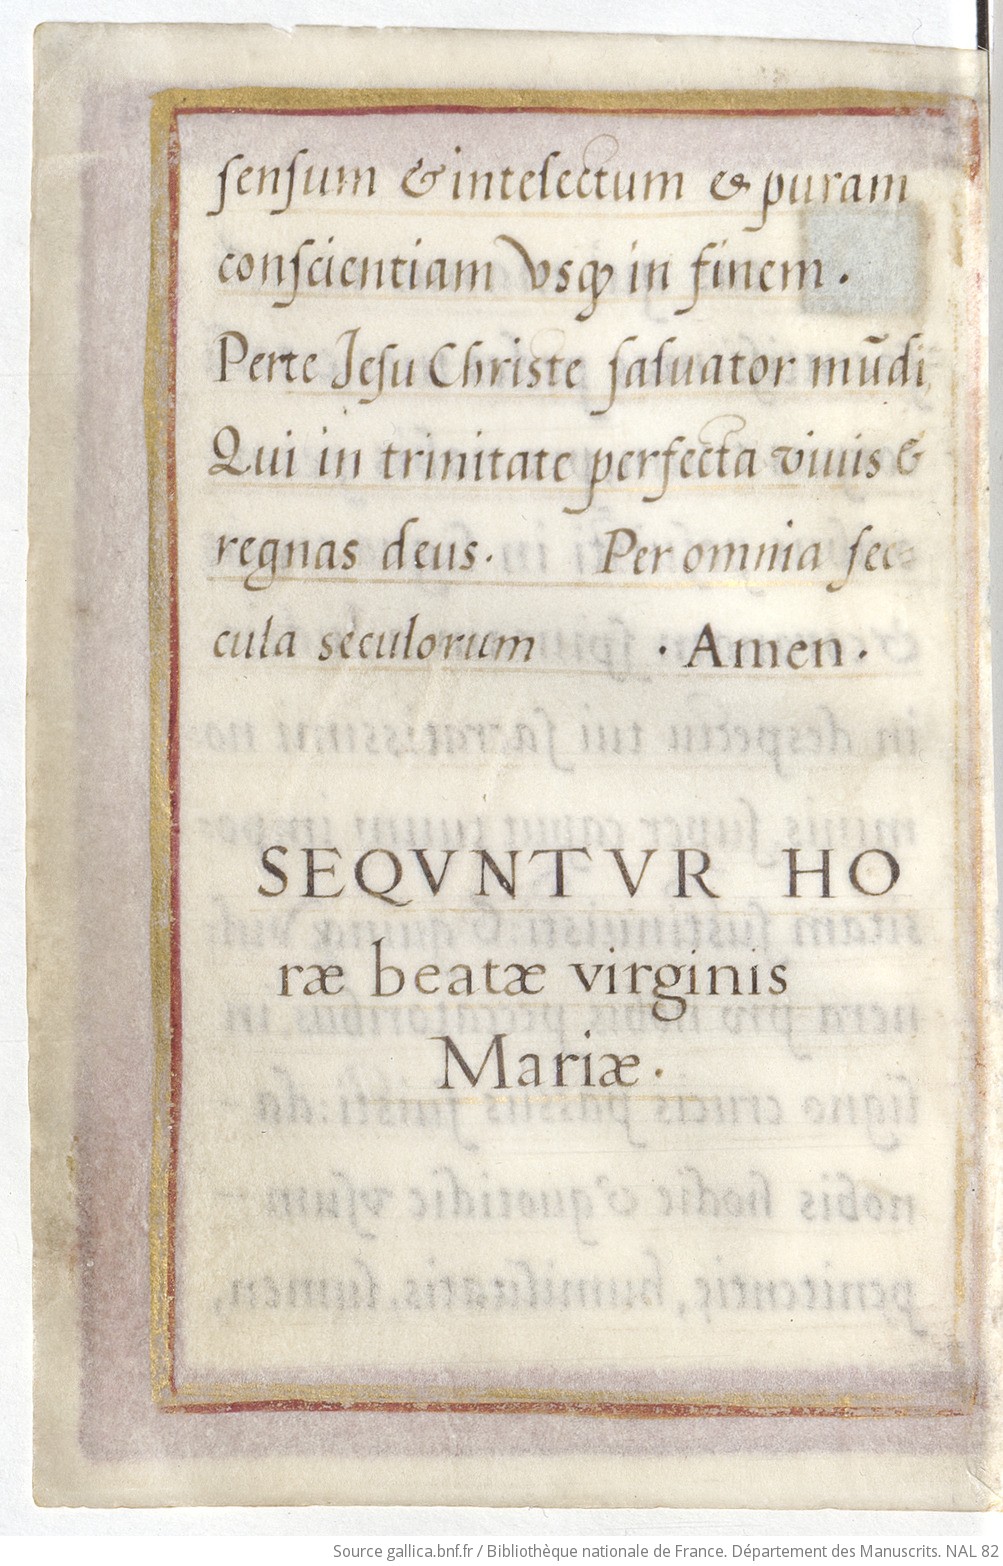 sensum & intelectum & puram
conscientiam vsq3 in finem.
Per te Jesu Christe saluator mūdi
Qui in trinitate perfecta viuis &
regnas deus. Per omnia sec=
cula seculorum · Amen ·
SEQVNTVR HO
ræ beatæ virginis
Mariæ ·
Source gallica.bnf.fr / Bibliothèque nationale de France. Département des Manuscrits. NAL 82